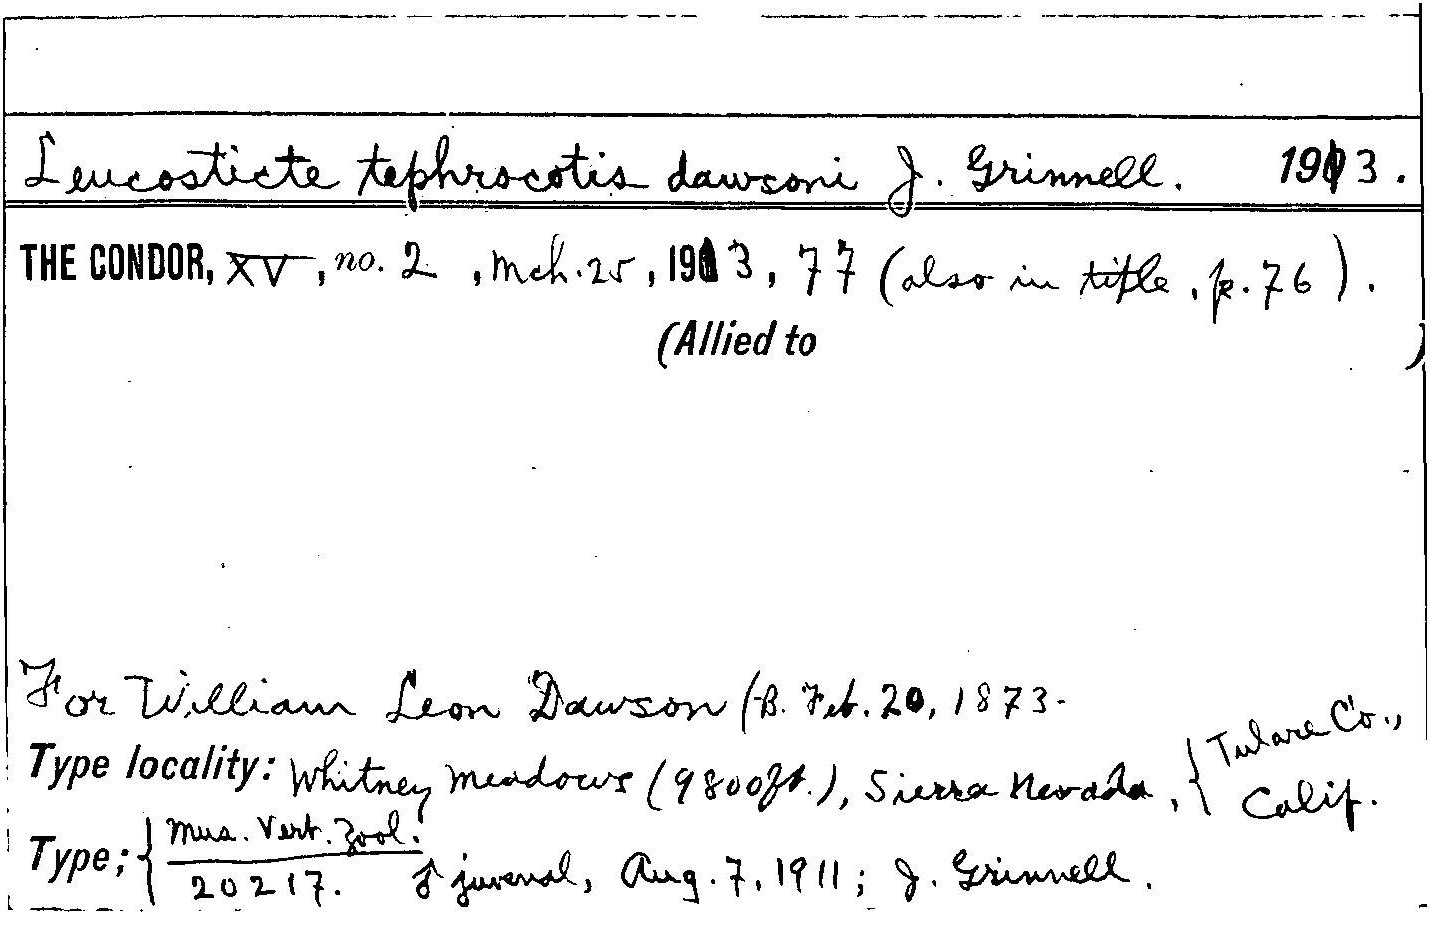 Leucosticte tephrocotis dawsoni J. Grinnell. 1913.
THE CONDOR, XV, no. 2, Mch. 25, 1913, 77 (also in title, p. 76).
(Allied to )
For William Leon Dawson (B. Feb. 20, 1873-
Type locality: Whitney Meadows (9800ft.), Sierra Nevada, { Tulare Co., Calif.
Type; { Mus. Vert. Zool.
20217. ♂ juvenal, Aug. 7, 1911; J. Grinnell.